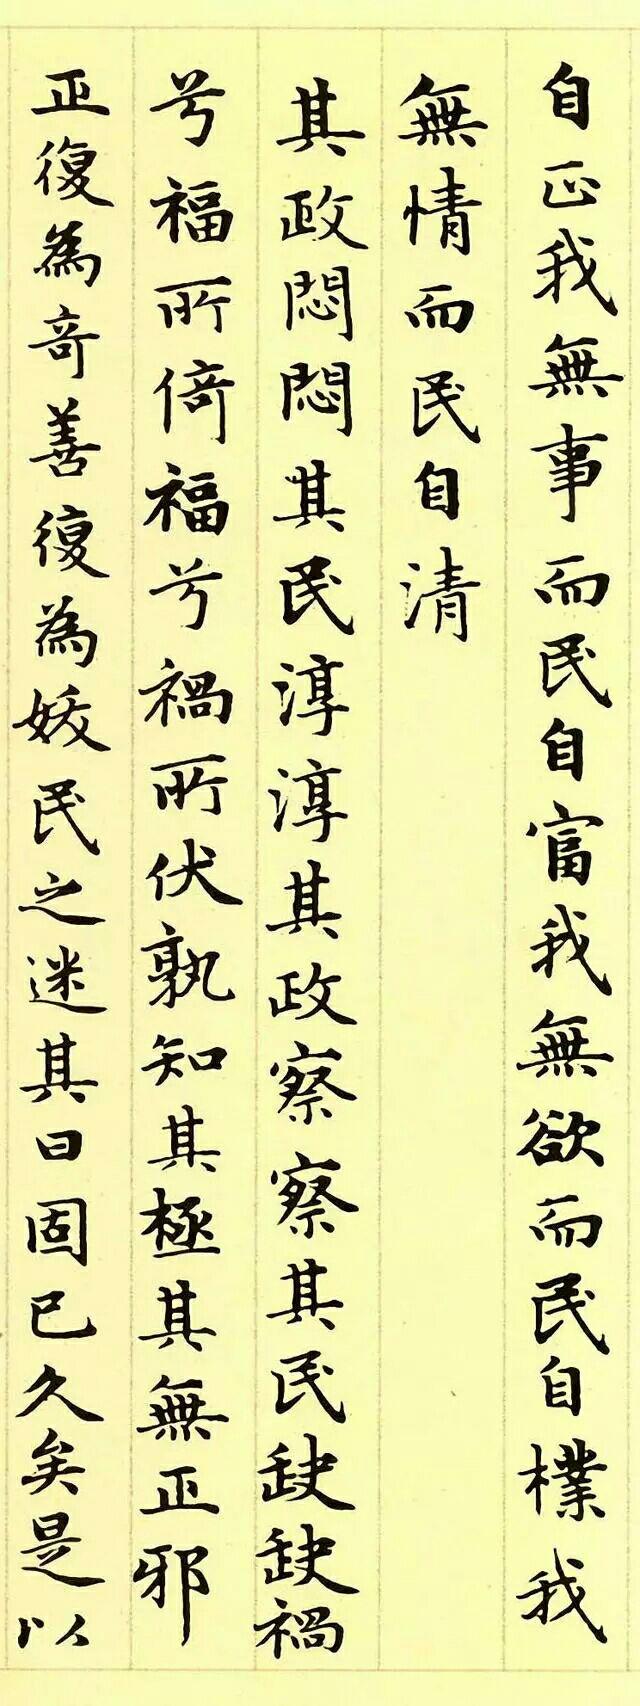 自正我無事而民自富我無欲而民自樸我
無情而民自清
其政悶悶其民淳淳其政察察其民缺缺禍
兮福所倚福兮禍所伏孰知其極其無正邪
正復為奇善復為妖民之迷其曰固已久矣是以